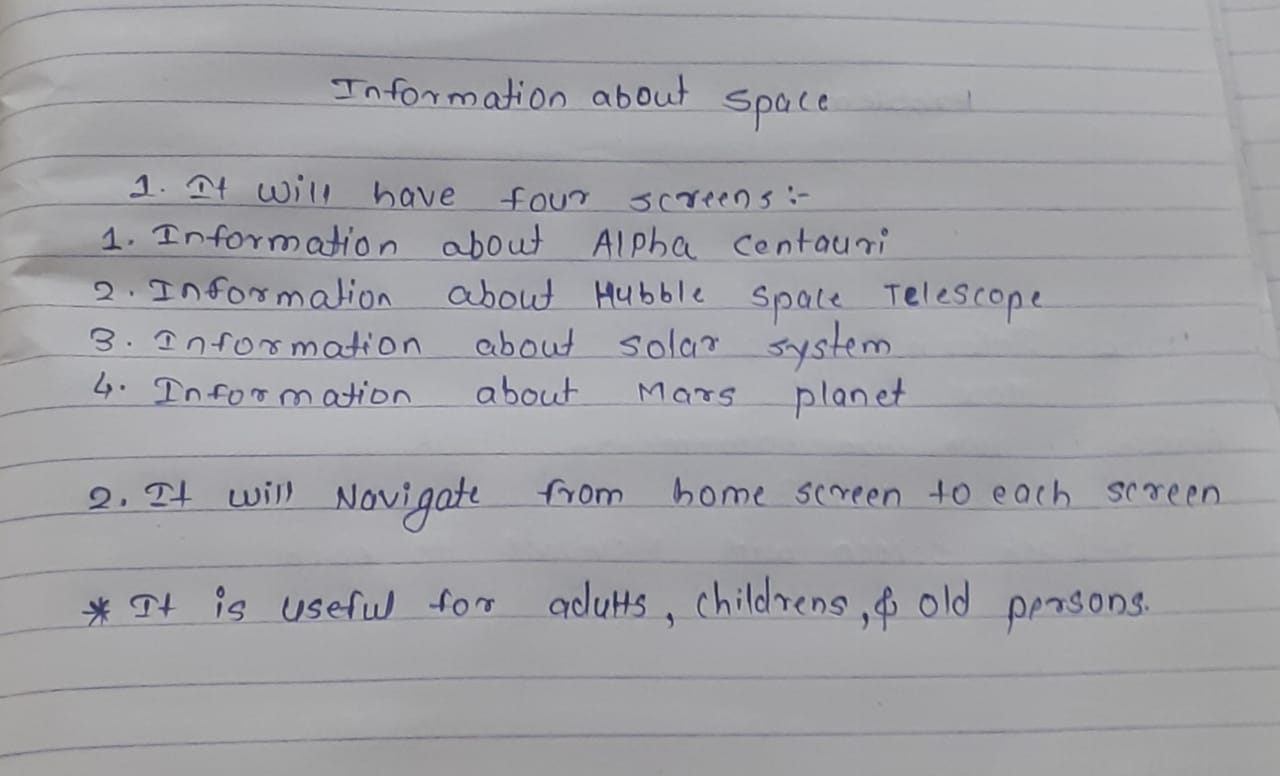 Information about space
1. It will have four screens :-
1. Information about Alpha Centauri
2. Information about Hubble Space Telescope
3. Information about solar system
4. Information about Mars planet
2. It will Navigate from home screen to each screen
* It is useful for adults, childrens, & old persons.